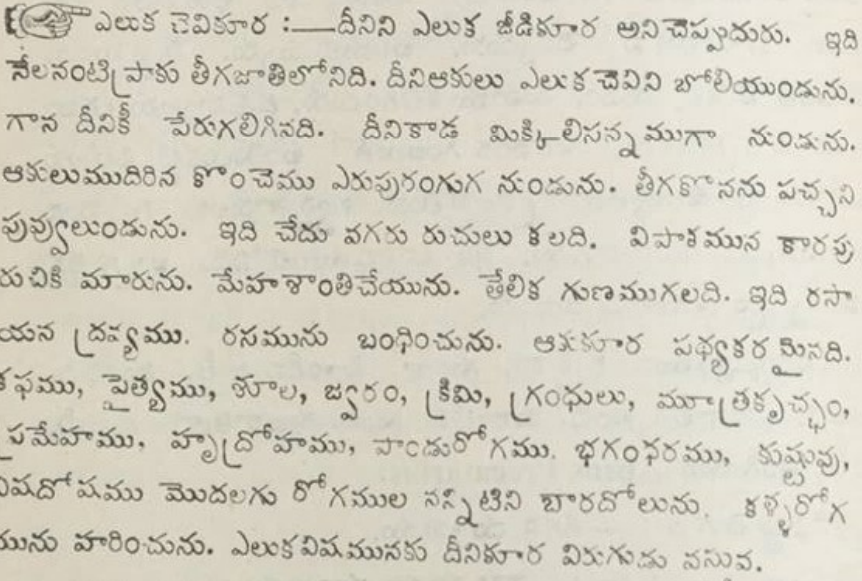 ఎలుక చెవికూర :—దీనిని ఎలుక జీడికూర అని చెప్పుదురు. ఇది
నేలనంటి ప్రాకు తీగజాతిలోనిది. దీనిఆకులు ఎలుక చెవిని బోలియుండును.
గాన దీనికీ పేరుగలిగినది. దీనికాడ మిక్కిలిసన్నముగా నుండును.
ఆకులుముదిరిన కొంచెము ఎరుపురంగుగ నుండును. తీగకొసను పచ్చని
పువ్వులుండును. ఇది చేదు వగరు రుచులు కలది. విపాకమున కారపు
రుచికి మారును. మేహశాంతిచేయును. తేలిక గుణముగలది. ఇది రసా
యన ద్రవ్యము. రసమును బంధించును. ఆకుకూర పథ్యకరమైనది.
కఫము, పైత్యము, శూల, జ్వరం, క్రిమి, గ్రంధులు, మూత్రకృచ్ఛం,
ప్రమేహము, హృద్రోహము, పాండురోగము. భగంధరము, కుష్ఠువు,
విషదోషము మొదలగు రోగముల నన్నిటిని బారదోలును. కళ్ళరోగ
మును హరించును. ఎలుకవిషమునకు దీనికూర విరుగుడు వస్తువ.